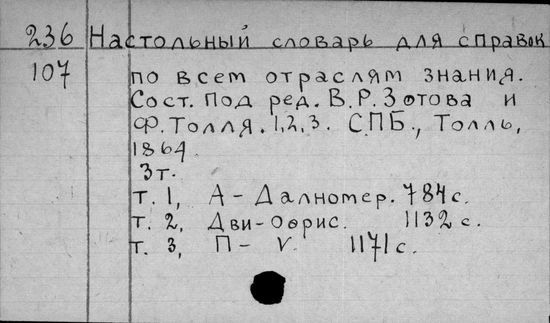 236 Настольный словарь для справок
107 по всем отраслям знания.
Сост. под ред. В.Р. Зотова и
Ф. Толля. 1,2,3. С.П.Б., Толль,
1864.
3т.
т. 1, А – Далномер. 784 с.
т. 2, Дви-Оѳрис. 1132 с.
т. 3, П – V. 1171 с.